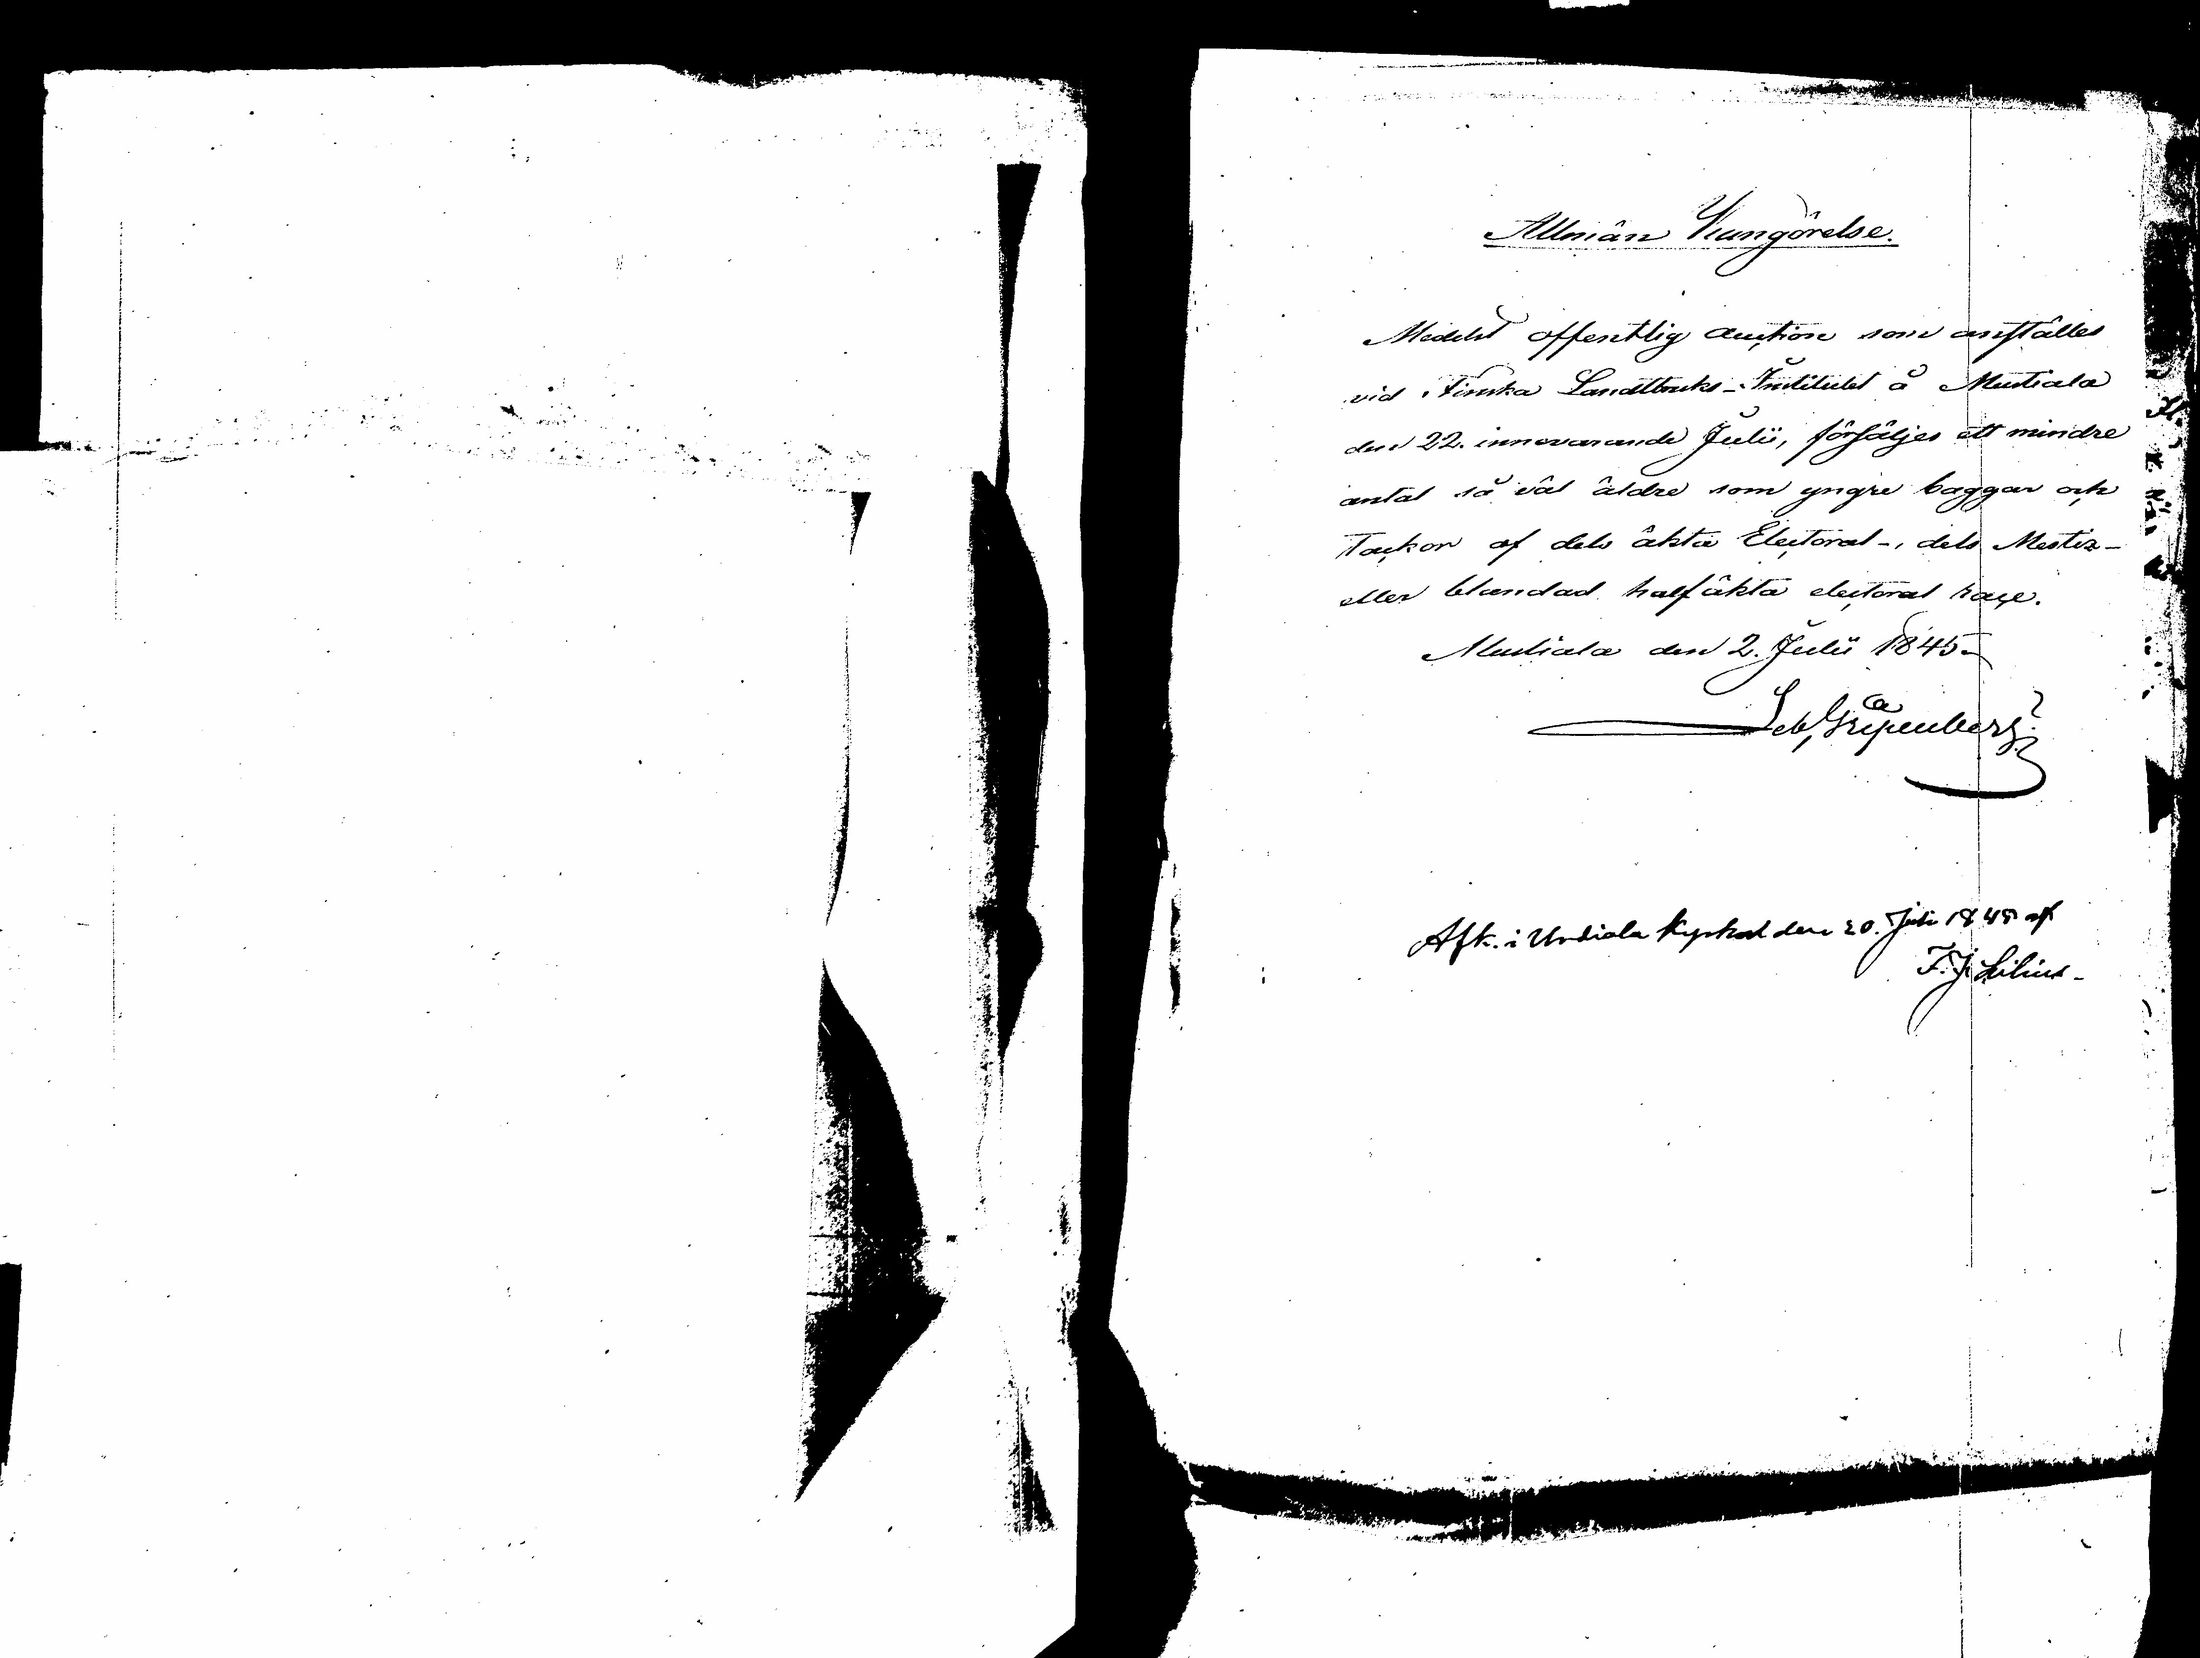 Allmän Kungörelse.
Medelst offentlig auction som anställes
vid Finska Landtbruks-Institutet å Mustiala
den 22. innevarande Julii, försäljes ett mindre
antal så väl äldre som yngre baggar och
Tackor af dels äkta Electoral-, dels Mestiz-
eller blandad halfäkta electoral race.
Mustiala den 2. Julii 1845.
Seb. Gripenberg.
Afk. i Urdiala Kyrka den 20. Juli 1845 af
F. J. Lilius.